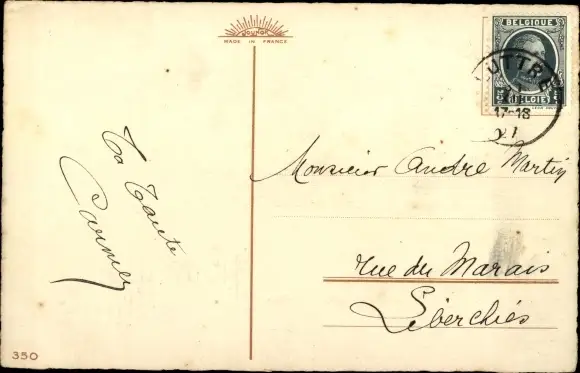 MADE IN FRANCE
BELGIQUE
BELGIË
LUTTRE
17-18
Ta Tante
Carmen
Monsieur André Martin
rue du Marais
Liberchies
350